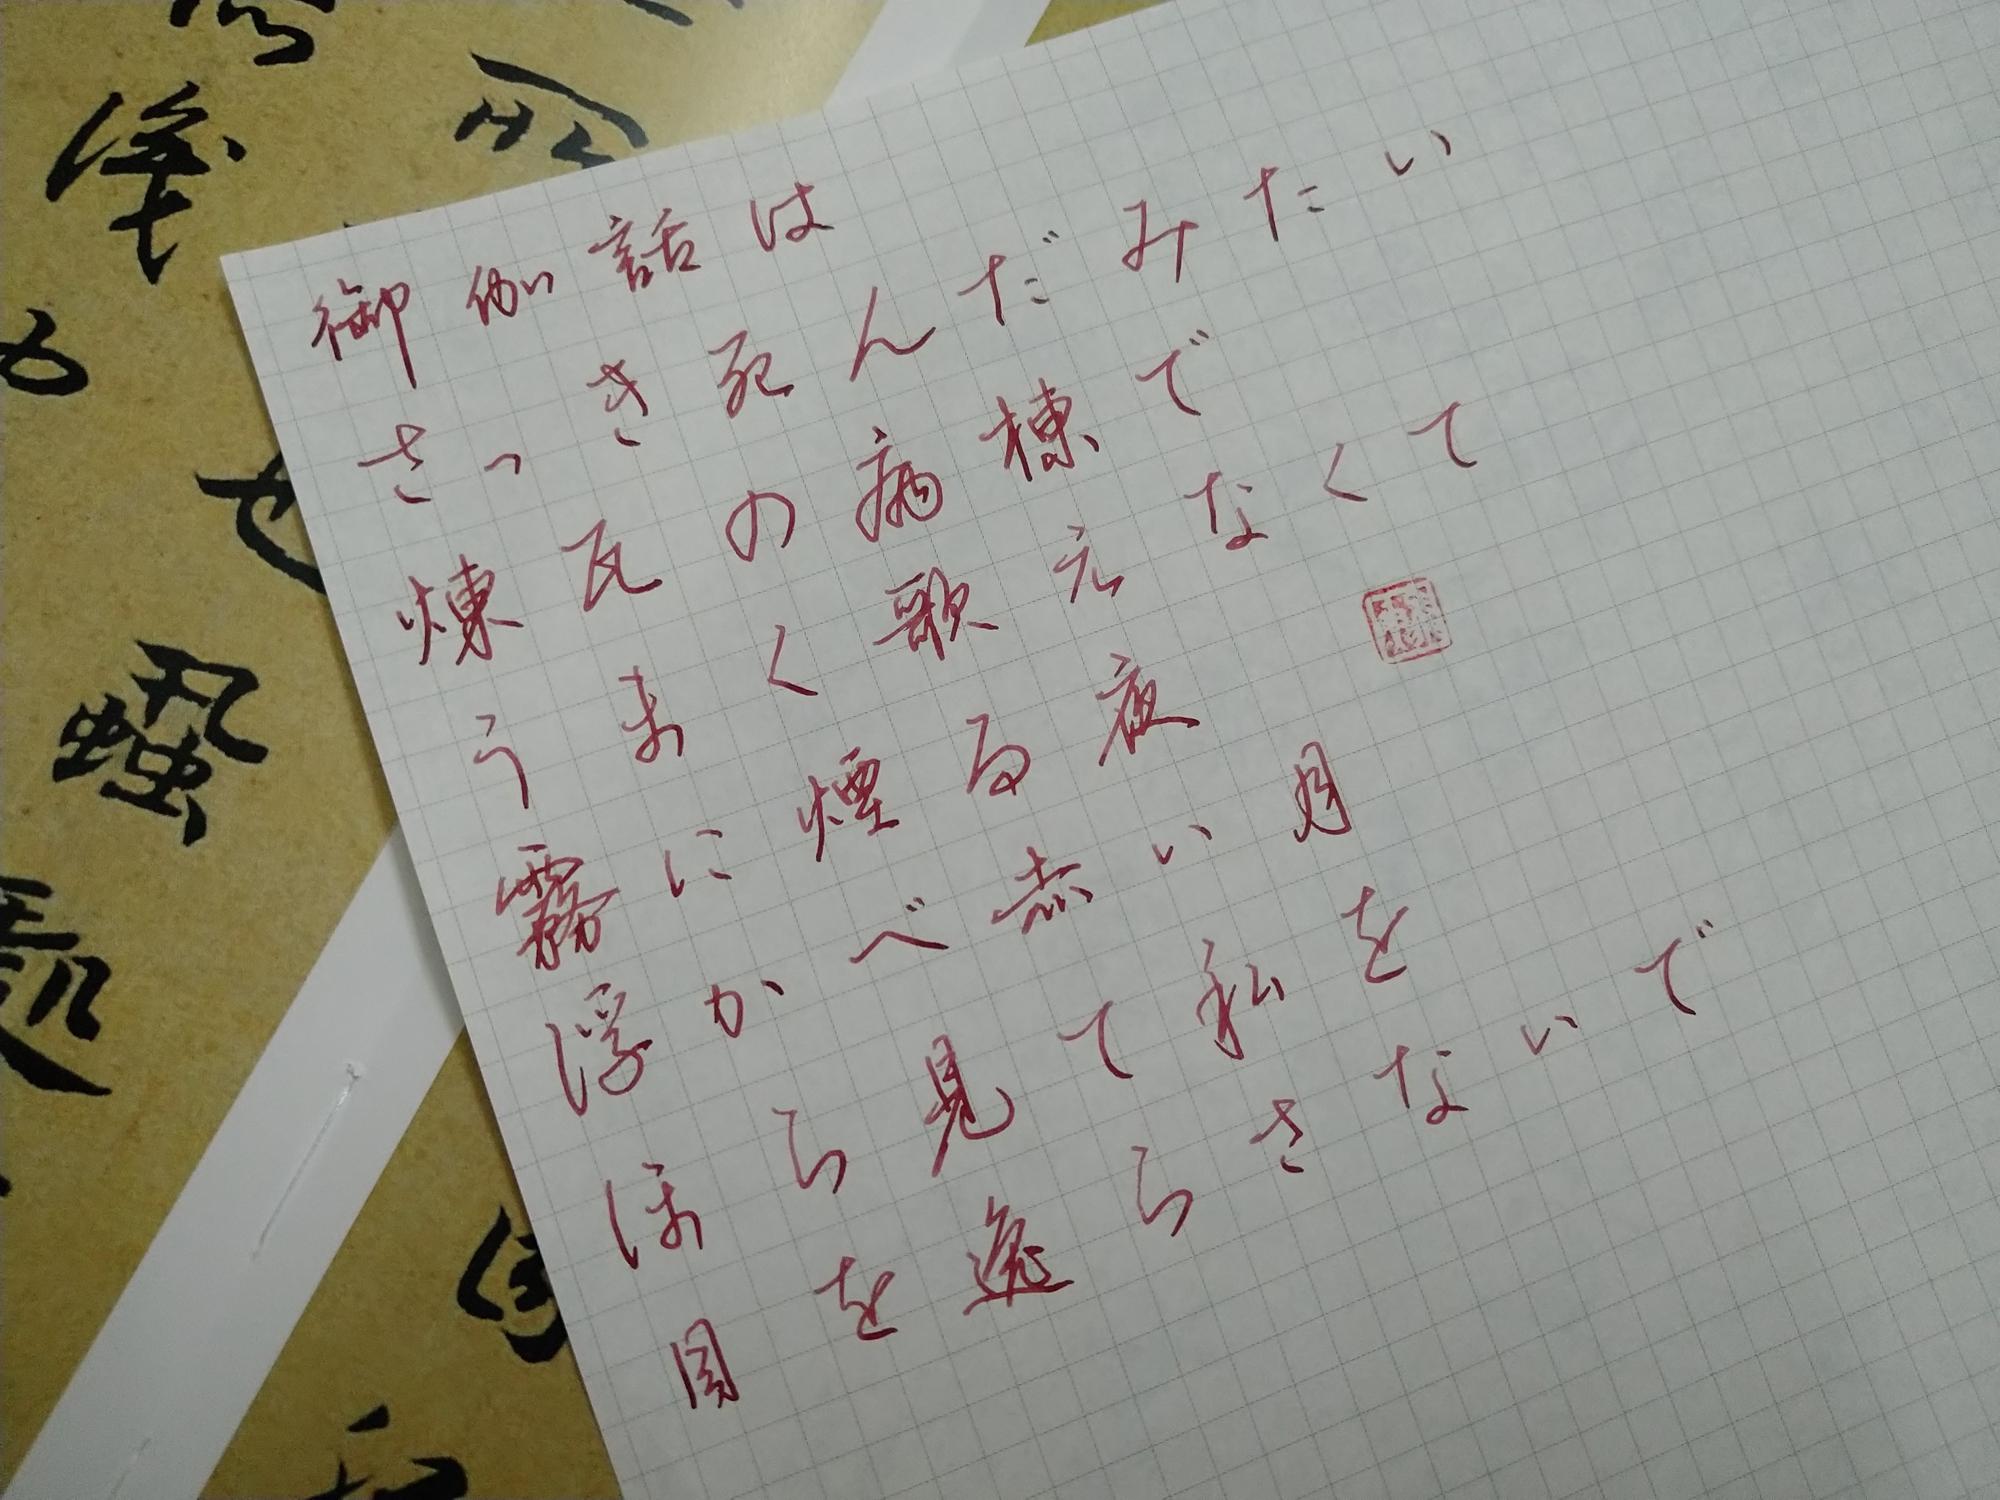 御伽話は
さっき死んだみたい
煉瓦の病棟で
うまく歌えなくて
霧に煙る夜
浮かべ赤い月
ほら見て私を
目を逸らさないで